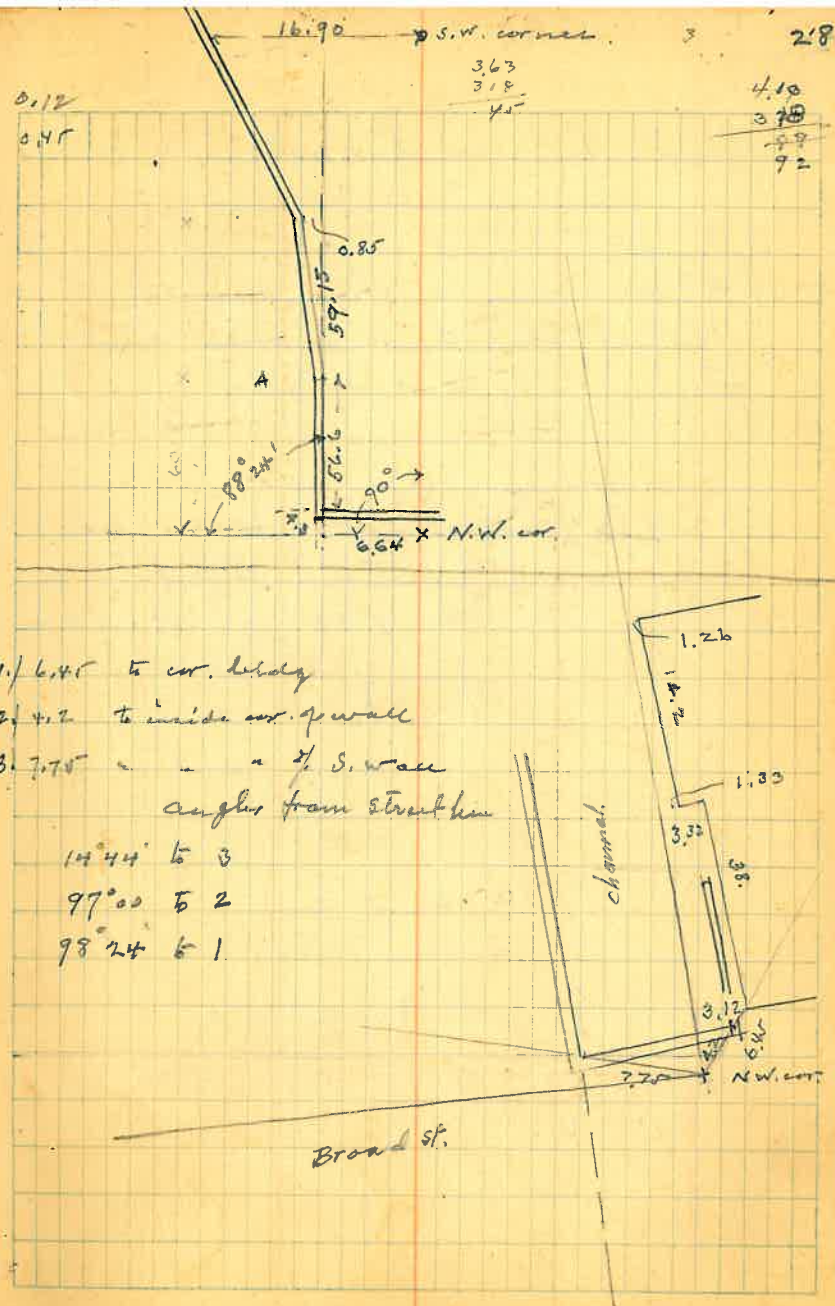 16.90 S.W. corner. 3 28
3.63
3.18
.45
4.10
3.18
92
0.12
0.45
0.85
59.15
A
56.6
88° 24'
90°
6.64 X N.W. cor.
1.26
14.2
1.33
3.32
38.
1/ 6.45 to cor. bldg
2/ 4.2 to inside cor. of wall
3. 7.75 " " " of S. wall
angles from street line
14° 44' to 3
97° 00 to 2
98° 24 to 1
channel.
3.12
6.45
4.2
7.75 N.W. cor.
Broad St.